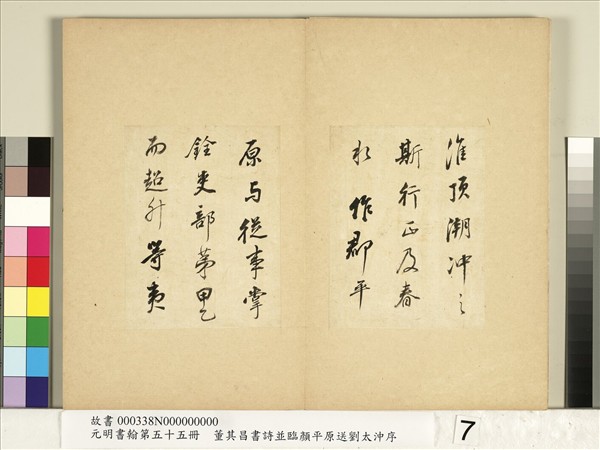 淮頂潮沖之
斯行正及春
水作郡平
原与從事掌
銓吏部苐甲乙
而超升等夷
故書 000338N000000000
元明書翰第五十五冊　董其昌書詩並臨顏平原送劉太沖序
7